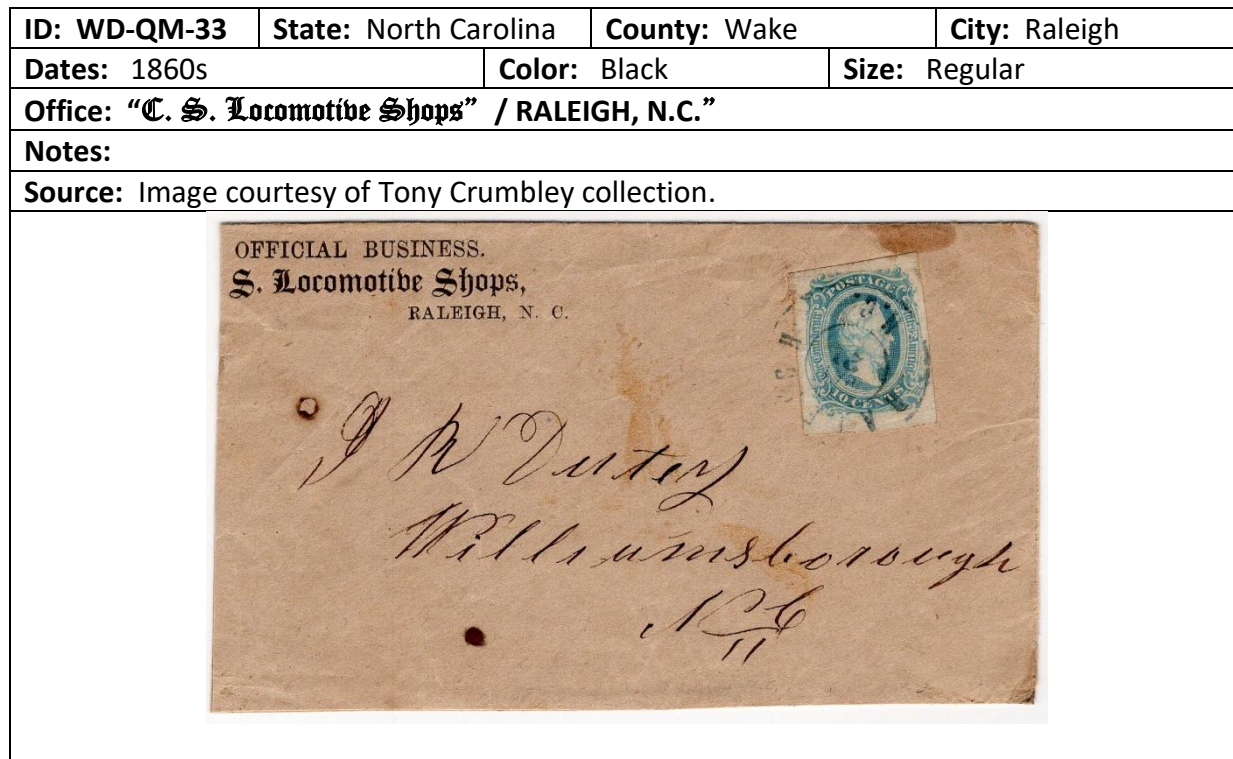 ID: WD-QM-33 State: North Carolina County: Wake City: Raleigh
Dates: 1860s Color: Black Size: Regular
Office: “C. S. Locomotive Shops” / RALEIGH, N.C.”
Notes:
Source: Image courtesy of Tony Crumbley collection.
OFFICIAL BUSINESS.
S. Locomotive Shops,
RALEIGH, N. C.
POSTAGE
10 CENTS
J R Dutey
Williamsborough
N C